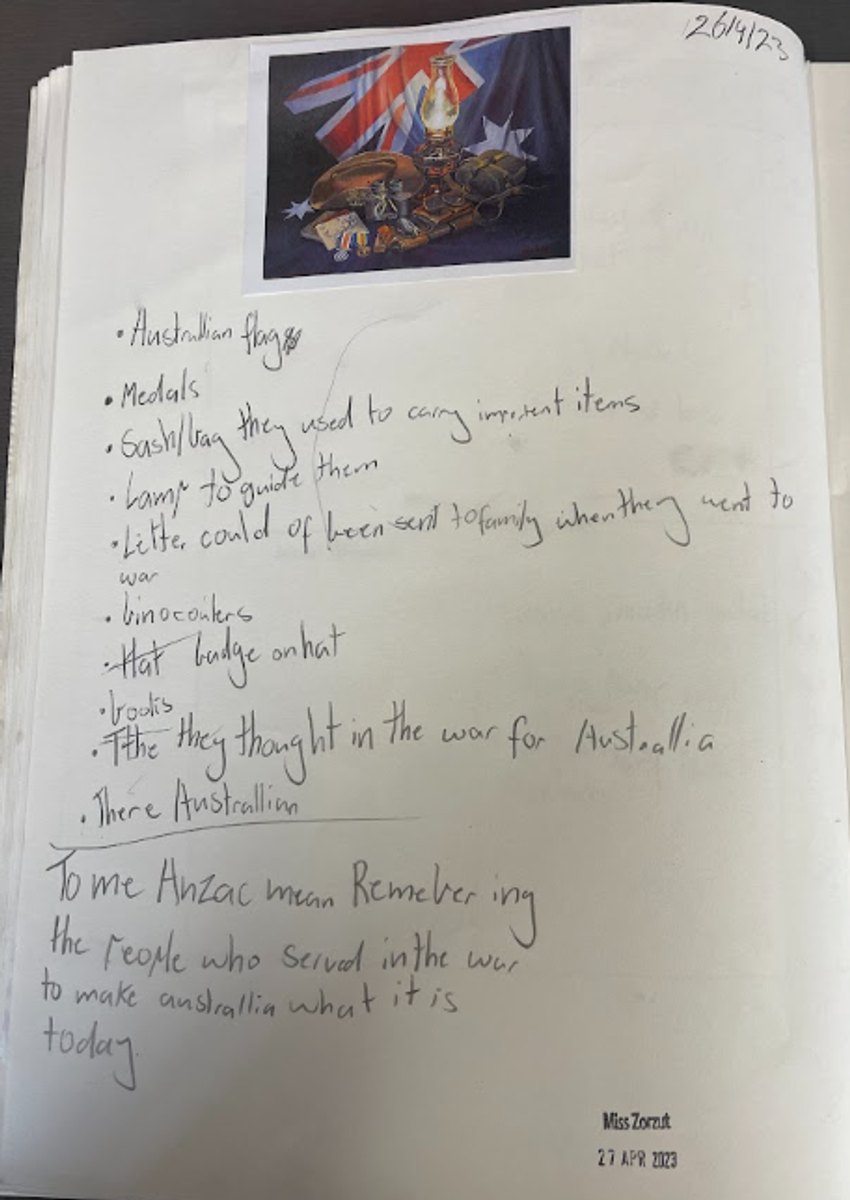 26/4/23
• Australlian flag
• Medals
• Sash/bag they used to carry imporent items
• Lamp to guide them
• Litter could of been sent to family when they went to
war
• binocoulers
• Hat badge on hat
• boots
• the they thought in the war for Australlia
• There Australlian
To me Anzac mean Remeber ing
the People who served in the war
to make australlia what it is
today.
Miss Zorzut
27 APR 2023